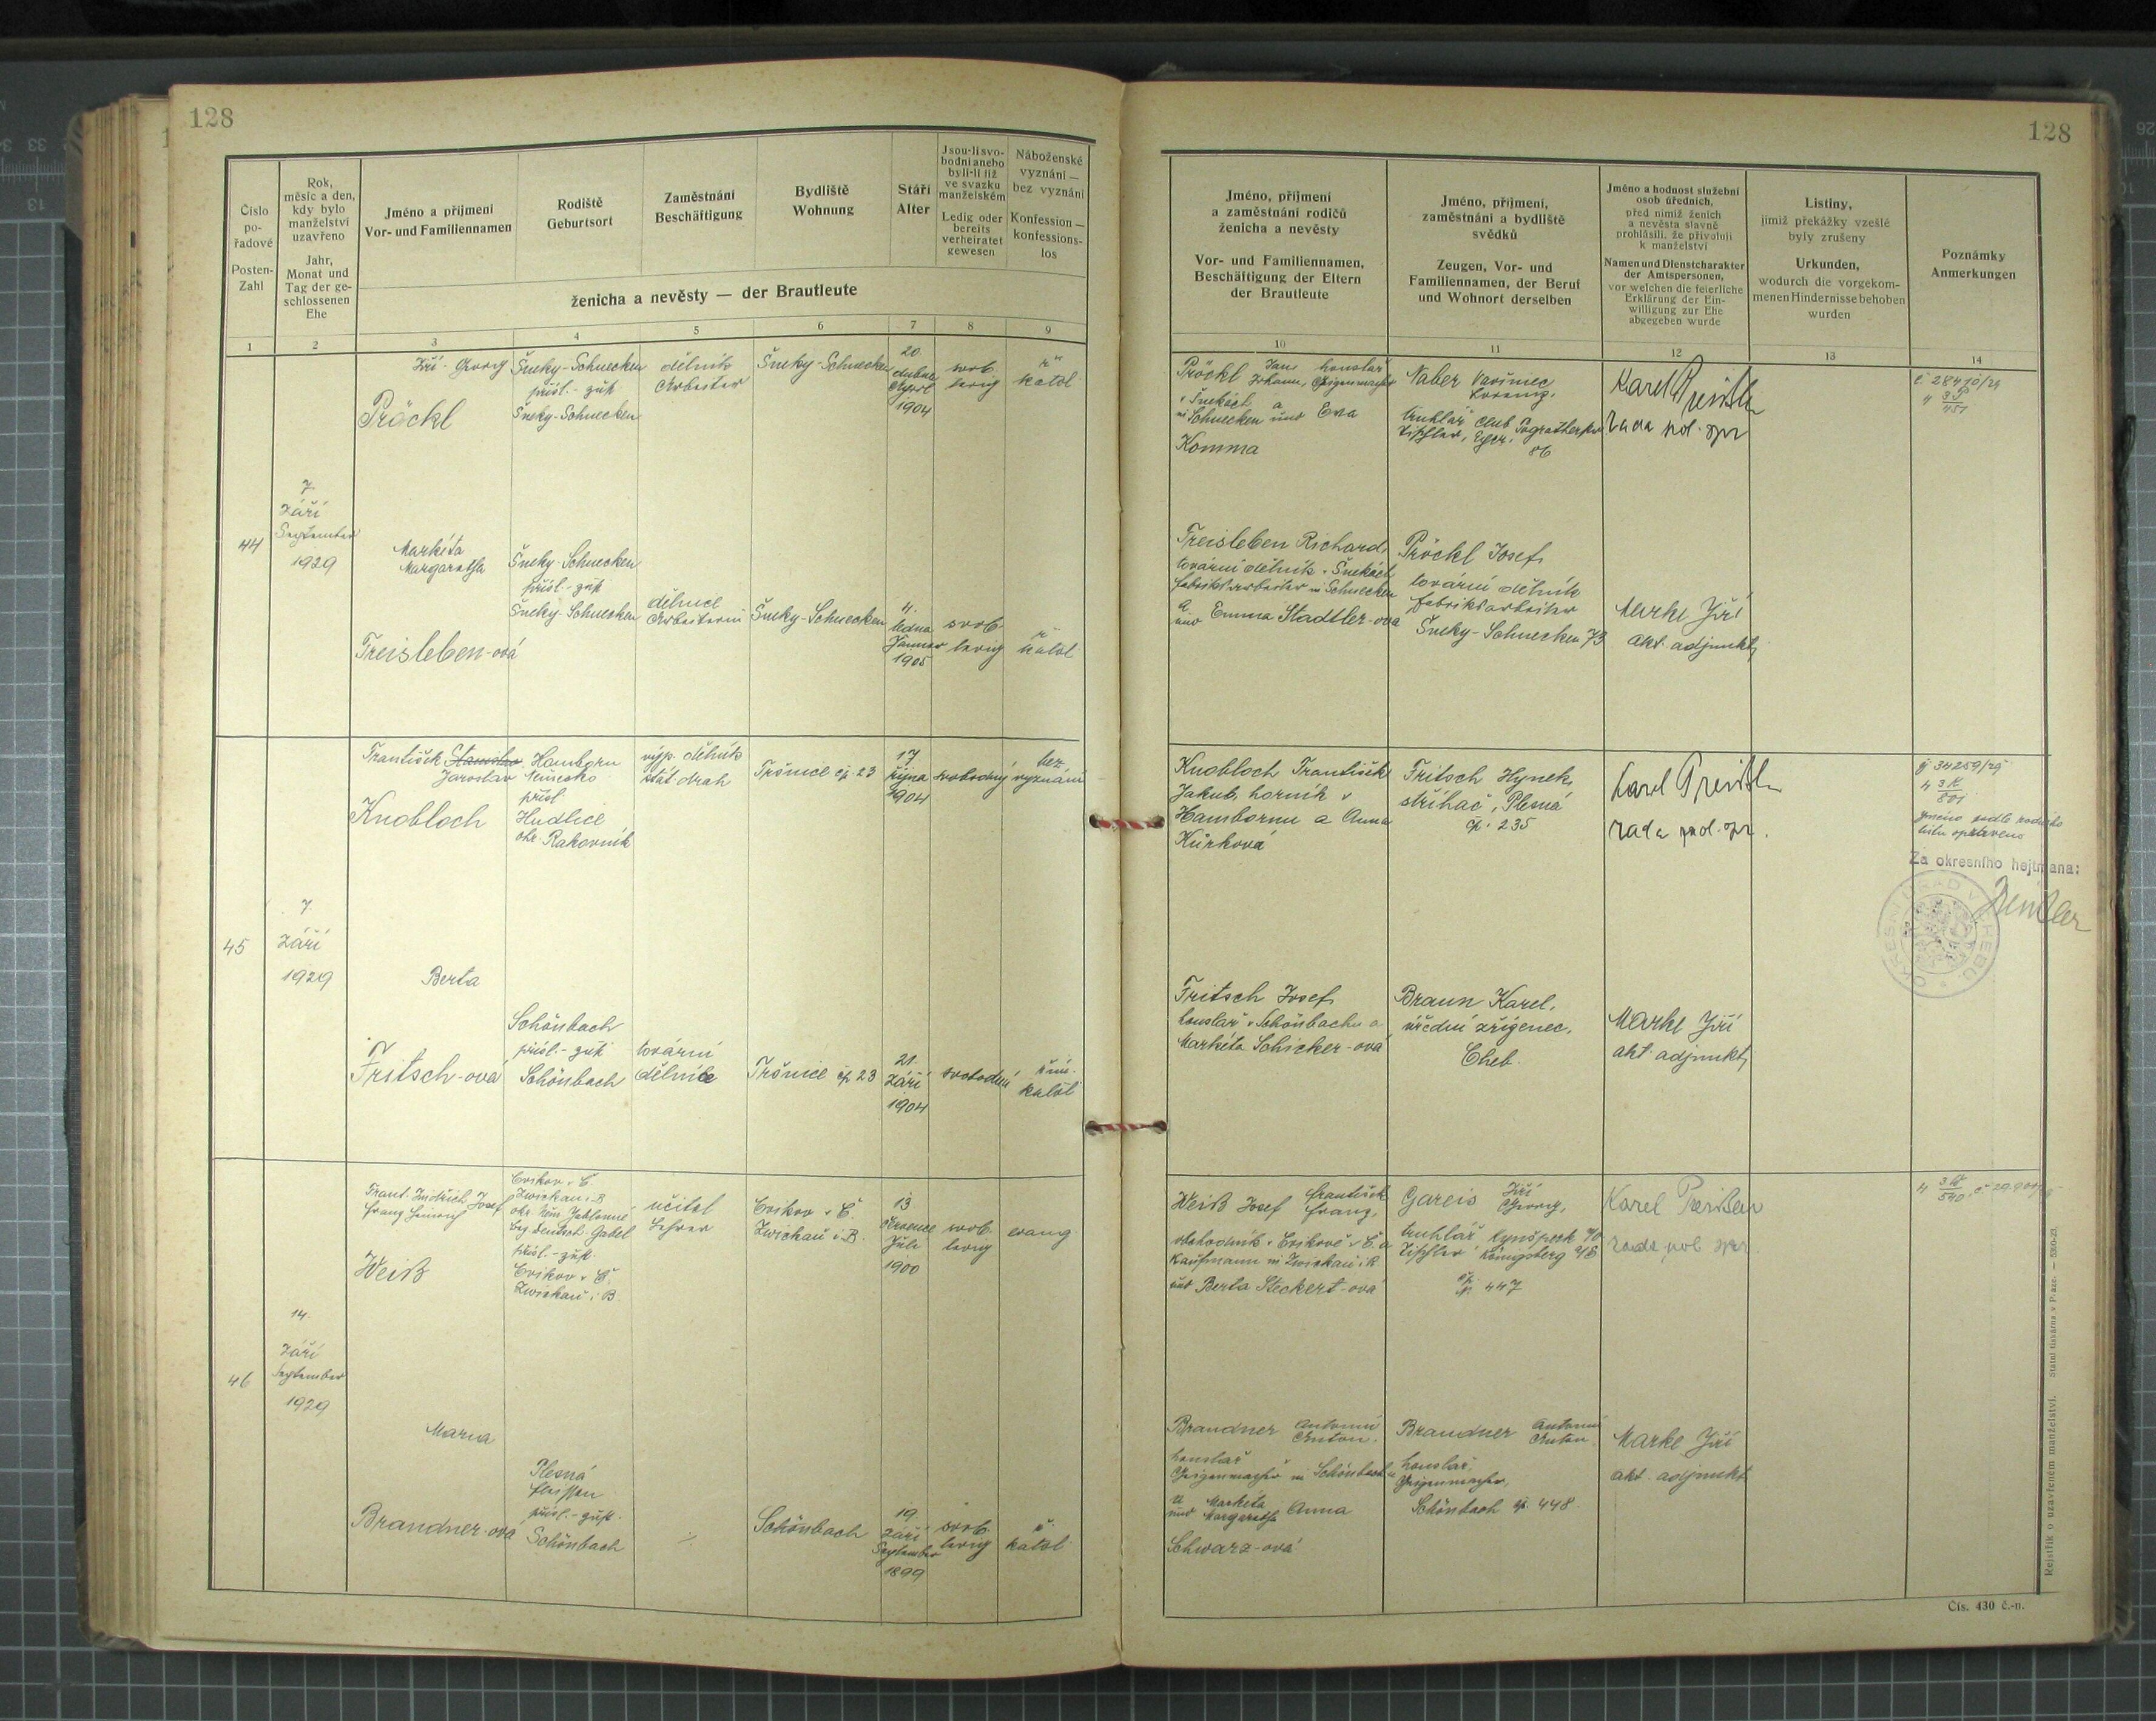 128
Číslo
po-
řadové
Posten-
Zahl
Rok,
měsíc a den,
kdy bylo
manželství
uzavřeno
Jahr,
Monat und
Tag der ge-
schlossenen
Ehe
Jméno a příjmení
Vor- und Familiennamen
Rodiště
Geburtsort
Zaměstnání
Beschäftigung
Bydliště
Wohnung
Stáří
Alter
Jsou-li svo-
bodni anebo
byli-li již
ve svazku
manželském
Ledig oder
bereits
verheiratet
gewesen
Náboženské
vyznání —
bez vyznání
Konfession —
konfessions-
los
ženicha a nevěsty — der Brautleute
1 2 3 4 5 6 7 8 9
44
7.
září
September
1929
Jiří - Georg
Pröckl
Šneky-Schnecken
přísl.-zúst
Šneky-Schnecken
dělník
Arbeiter
Šneky-Schnecken
20.
dubna
April
1904
svob.
ledig
ř.
katol.
Markéta
Margaretha
Treisleben-ová
Šneky-Schnecken
přísl.-zúst
Šneky-Schnecken
dělnice
Arbeiterin
Šneky-Schnecken
4.
ledna
Jänner
1905
svob
ledig
ř.
katol.
45
7.
září
1929
František
Jaroslav
Knobloch
Hamborn
Německo
přísl.
Hudlice
okr. Rakovník
výp. dělník
stát. drah
Tršnice čp. 23
17
října
1904
svobodný
bez
vyznání
Berta
Fritsch-ová
Schönbach
přísl.-zúst
Schönbach
tovární
dělnice
Tršnice čp 23
21.
září
1904
svobodná
řím.
katol.
46
14.
září
September
1929
Frant. Jindřich Josef
Franz Heinrich
Weiß
Cvikov v Č.
Zwickau i. B
okr. Něm. Jablonné
bez. Deutsch. Gabel
přísl.-zúst.
Cvikov v Č.
Zwickau i. B.
učitel
Lehrer
Cvikov v Č.
Zwickau i. B.
13
července
Juli
1900
svob.
ledig
evang
Maria
Brandner-ová
Plesná
Fleissen
přísl.-zúst.
Schönbach
Schönbach
19.
září
September
1899
svob.
ledig
ř.
katol.
128
Jméno, příjmení
a zaměstnání rodičů
ženicha a nevěsty
Vor- und Familiennamen,
Beschäftigung der Eltern
der Brautleute
Jméno, příjmení,
zaměstnání a bydliště
svědků
Zeugen, Vor- und
Familiennamen, der Beruf
und Wohnort derselben
Jméno a hodnost služební
osob úředních,
před nimiž ženich
a nevěsta slavně
prohlásili, že přivolují
k manželství
Namen und Dienstcharakter
der Amtspersonen,
vor welchen die feierliche
Erklärung der Ein-
willigung zur Ehe
abgegeben wurde
Listiny,
jimiž překážky vzešlé
byly zrušeny
Urkunden,
wodurch die vorgekom-
menen Hindernisse behoben
wurden
Poznámky
Anmerkungen
10 11 12 13 14
Pröckl Jan houslař
Johann, Geigenmacher
v Šnekách a
in Schnecken und Eva
Komma
Naber Vavřinec
Lorenz,
truhlář Cheb
Tischler, Eger.
86
Karel
rada pol. spr
Treisleben Richard,
tovární dělník v Šnekách
Fabriksarbeiter in Schnecken
a
und Emma Stadtler-ová
Pröckl Josef,
tovární dělník
Fabriksarbeiter
Šneky-Schnecken 73
Markl Jiří
akt. adjunkt,
Knobloch František
Jakub, horník v
Hambornu a Anna
Kůrková
Fritsch Hynek,
střihač, Plesná
čp. 235
Karel
rada pol. spr.
jméno podle rodného
listu opraveno
Za okresního hejtmana:
OKRESNÍ ÚŘAD V CHEBU
Fritsch Josef,
houslař v Schönbachu a
Markéta Schicker-ová
Braun Karel,
úřední zřízenec,
Cheb.
Markl Jiří
akt. adjunkt,
Weiß Josef František
Franz,
obchodník v Cvikově v Č. a
Kaufmann in Zwickau i. B.
und Berta Steckert-ová
Gareis Jiří
Georg,
truhlář Kynšperk n/O
Tischler Königsberg a/E
čp. 447
Karel
rada pol. spr.
Brandner Antonín
Anton.
houslař
Geigenmacher in Schönbach
a Markéta
und Margaretha Anna
Schwarz-ová
Brandner Antonín
Anton.
houslař,
Geigenmacher,
Schönbach čp. 448.
Markl Jiří
akt. adjunkt
Rejstřík o uzavřeném manželství. Státní tiskárna v Praze. — 5360-23.
Čís. 430 č.-n.